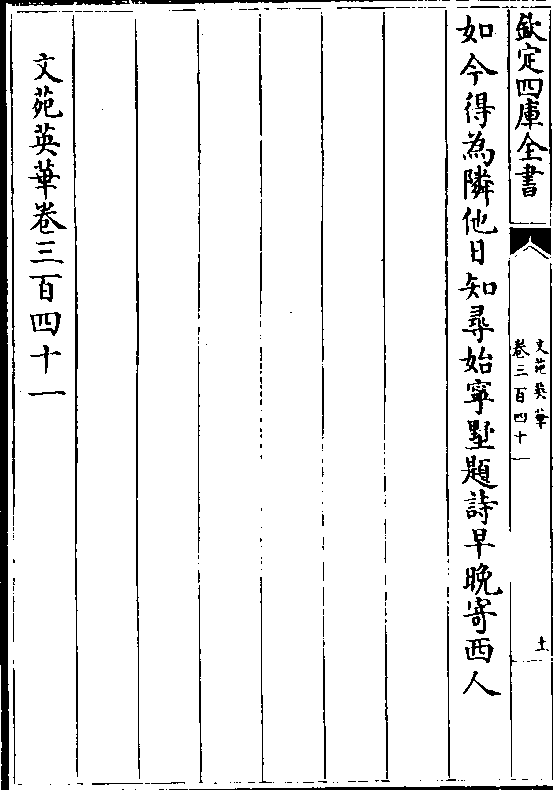 欽定四庫全書
文苑英華
卷三百四十一
十一
如今得為隣他日知尋始寧墅題詩早晚寄西人
文苑英華卷三百四十一